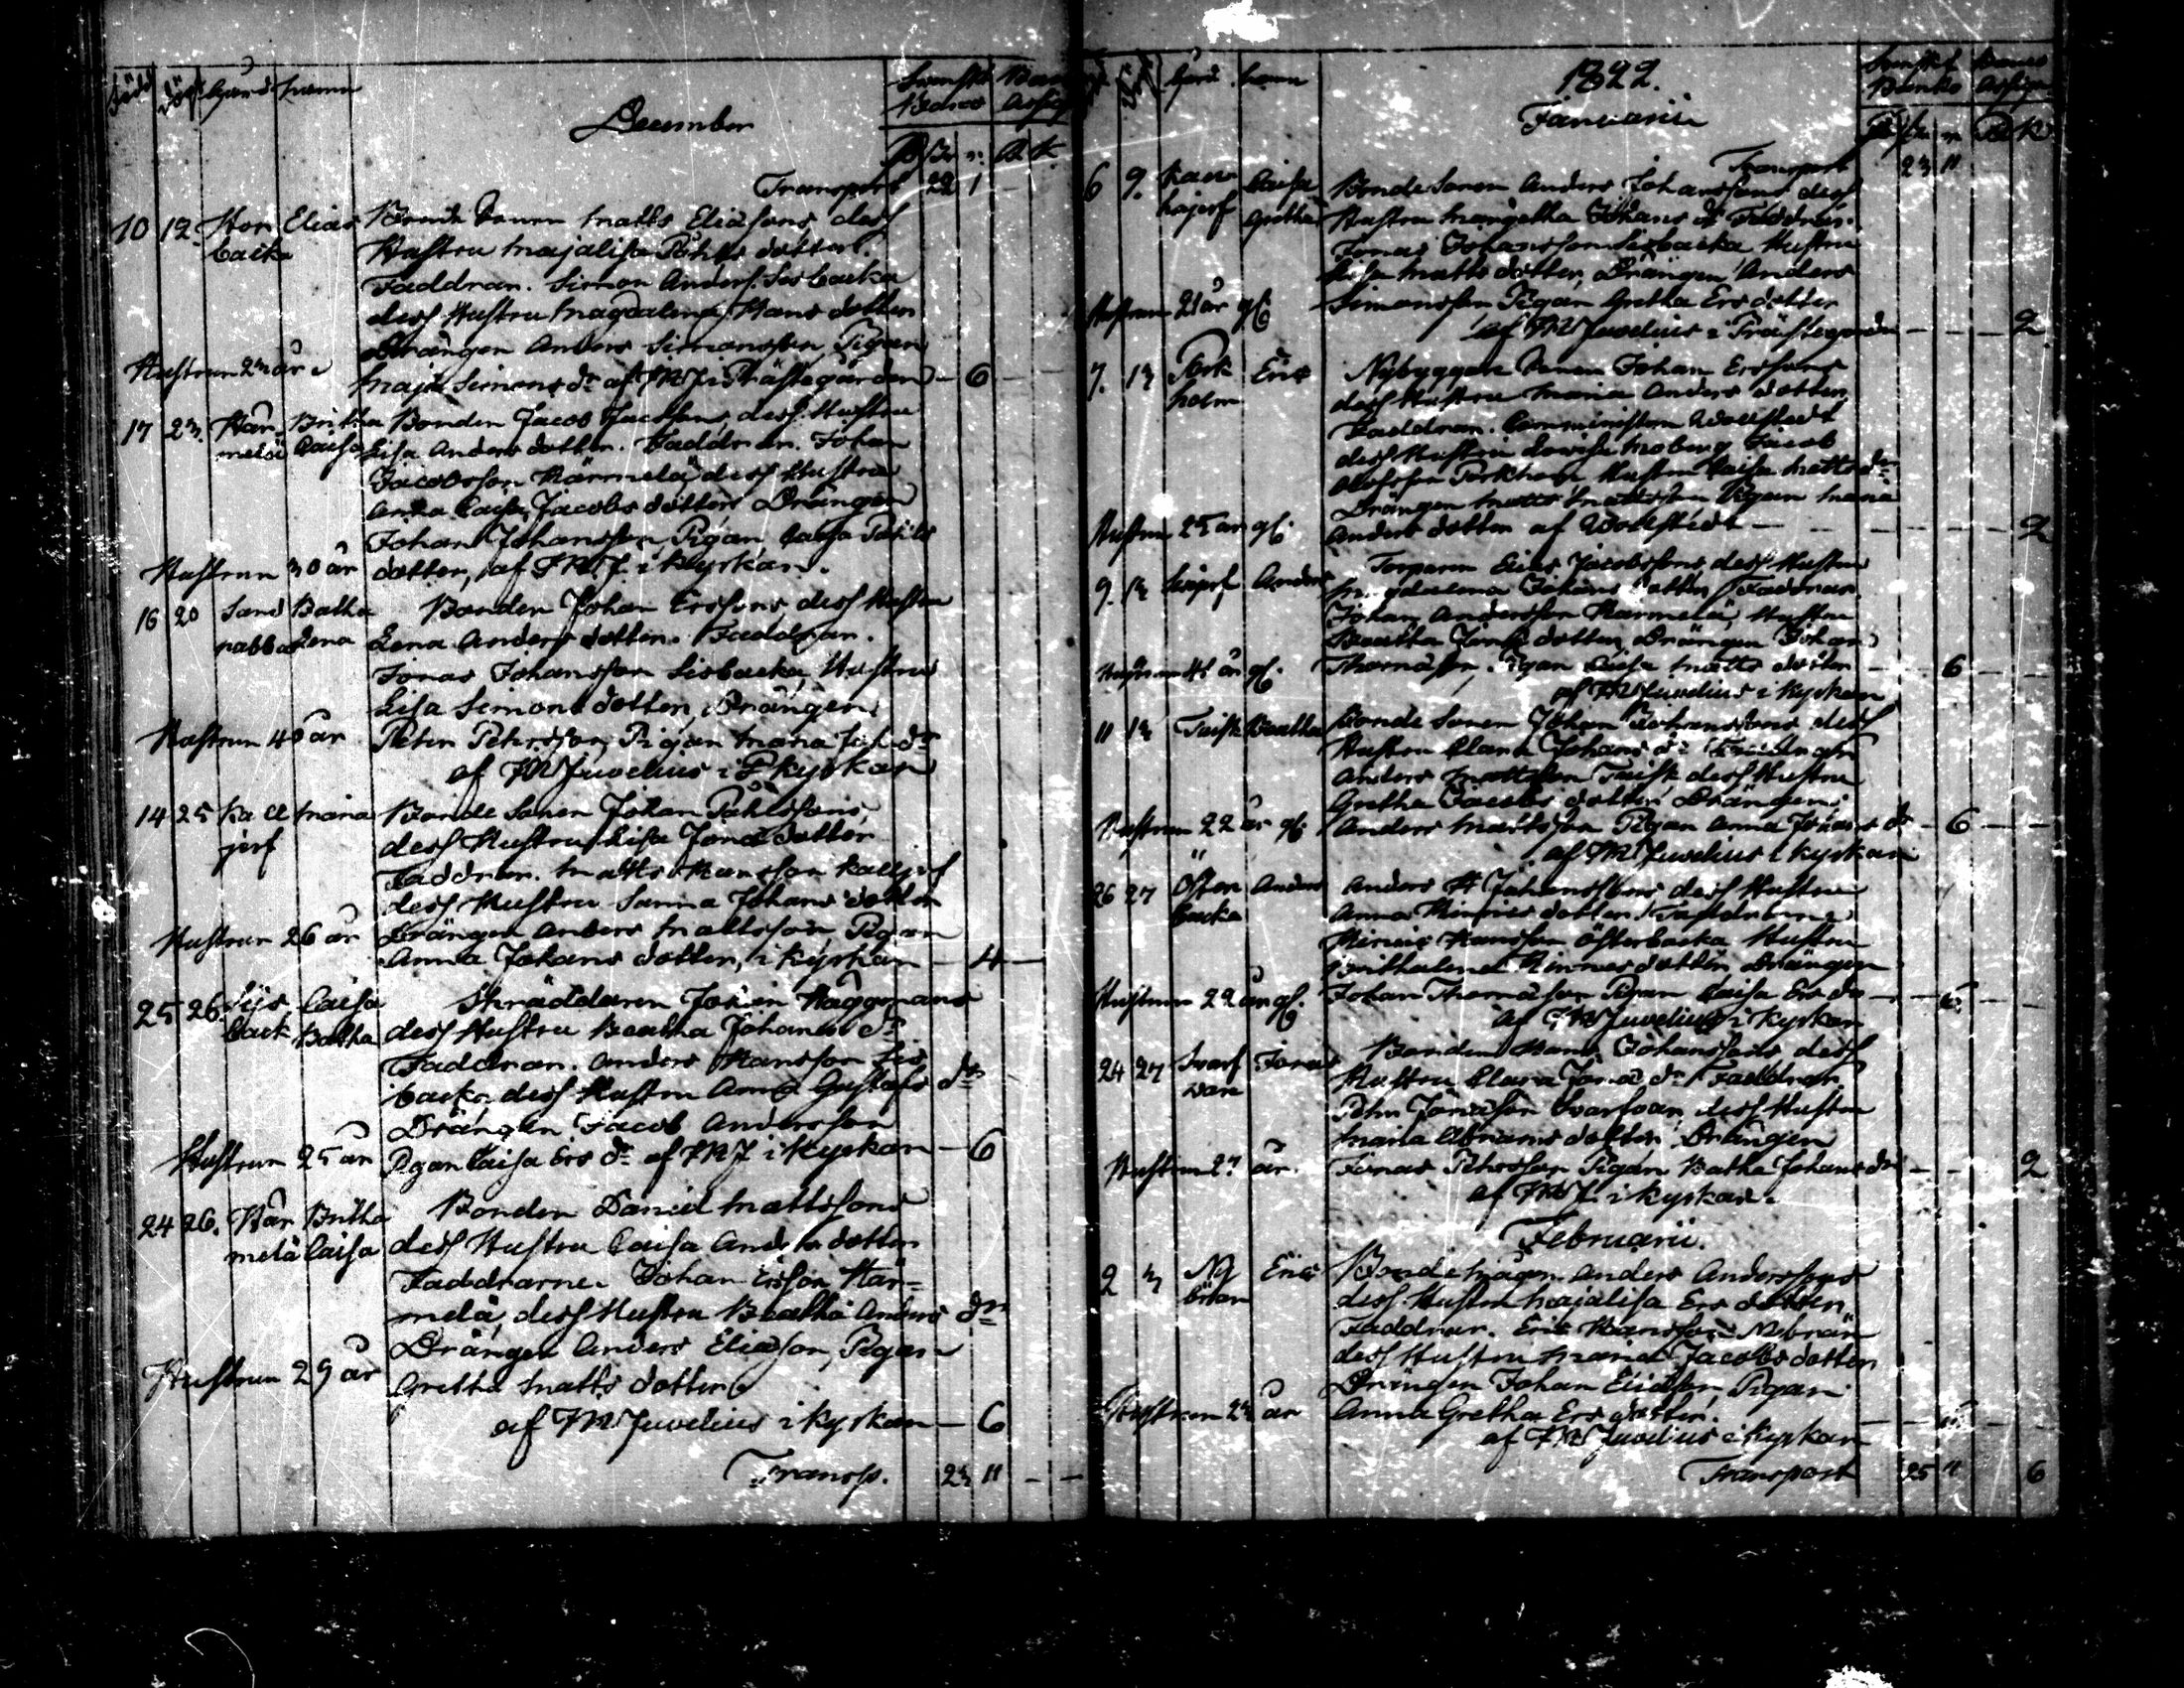 Född Döpt Gård namn
December
Svenska Banco
B Sk r. R K.
Transport 22 1
10 12 Stor Elias Bonde Sonen Matts Eliæsons dess
backa Hustru Majalisa Påhls dotter.
Faddran. Simon Anders. Sisbacka
dess Hustru Magdalena Hans dotter
Drängen Anders Simonsson Pigan
Hustrun 23 år Maja Simons dr af J M J i Prästegården - 6
17 23. Här Britha Bonden Jacob Jacobsons dess Hustru
melä Caisa Lisa Anders dotter. Faddran. Johan
Jacobsson Härmelä dess Hustru
Anna Caisa Jacobs dotter Drängen
Johan Johansson Pigan Caisa Påhls
Hustrun 30 år dotter, af J M J. i Kyrkan.
16 20 Sand Batha Bonden Johan Erssons dess Hustru
nabba Lena Lena Anders dotter. Faddran.
Jonas Johansson Sisbacka Hustru
Lisa Simons dotter, Drängen
Hustrun 40 år Peter Pehrsson, Pigan Maria Joh. dr
af J M Juvelius i Kyrkan
14 25 Kall Maria Bonde Sonen Johan Påhlssons,
jerf dess Hustru Lisa Jonæ dotter
Faddran. Matts Hansson Kalljerf
dess Hustru Sanna Johans dotter
Hustrun 26 år Drängen Anders Mattsson Pigan
Anna Johans dotter, i Kyrkan - 4 -
25 26. Sijs Caisa Skräddaren Johan Häggmans
back Batha dess Hustru Beatha Johans dr
Faddran. Anders Hansson Sis
backa dess Hustru Anna Gustafs dr
Drängen Jacob Andersson
Hustrun 25 år Pigan Caisa Ers dr af J M J i Kyrkan - 6
24 26. Här Britha Bonden Daniel Mattssons
melä Caisa dess Hustru Caisa Anders dotter
Faddrarne. Johan Ersson Här=
melä, dess Hustru Beatha Anders dr
Drängen Anders Eliæson, Pigan
Hustrun 29 år Gretha Matts dotter
af J M Juvelius i Kyrkan - 6
Transp. 23 11 - -
Gård namn
1822.
Januarii
Svenskt Banko
Transport 23 11
6 9. Caisa Bonde Sonen Anders Johanssons dess
Gretha Hustru Johans dr Faddran.
Jonas Johansson Sisbacka Hustru
Lisa Matts dotter, Drängen Anders
Hustrun 21 år gl. Simonsson Pigan Gretha Ers dotter
af J M Juvelius i Prästegården - - - 2
7. 13 Pörk Eric Nybyggare Sonen Johan Erssons
holm dess Hustru Maria Anders dotter
Faddran. Comministern Wollstedt
dess Hustru Lovisa Moberg Jacob
Hustru Caisa Matts dr
Drängen Matts Mattsson Pigan Maria
Hustrun 25 år gl. Anders dotter af Wollstedt - - - 2
9. 13 Anders Torparen Eric Jacobssons, dess Hustru
Magdalena Johans dotter Faddran.
Johan Andersson Härmelä, Hustru
Beatha Jonæ dotter, Drängen Johan
Hustrun år gl. Thomæson, Pigan Caisa Matts dotter - 6
af J M Juvelius i Kyrkan
11 13 Taist Beatha Bonde Sonen Johan Johanssons dess
Hustru Clara Johans dr Faddran
Anders Mattsson Taist dess Hustru
Gretha Jacobs dotter Drängen
Hustrun 22 år gl. Anders Mattsson Pigan Anna Johans dr - 6 - -
af J M Juvelius i Kyrkan
26 27 Öster Anders Anders H Johanssons dess Hustru
backa Anna Hinrics dotter. Faddrarne
Hinric Hansson Österbacka Hustru
Brithalena Hinrics dotter Drängen
Hustrun 22 år gl. Johan Thomæson Pigan Caisa Ers dr - - 6 - -
af J M Juvelius i Kyrkan
24 27 Svarf Jonas Bonden Hans Johanssons dess
van Hustru Clara Jonæ dr Faddran.
Pehr Jonæson Svarfvar, dess Hustru
Maria Abrams dotter Drängen
Hustrun 27 år. Jonas Pehrsson Pigan Batha Johans dr - - 2
af J M J i Kyrkan.
Februarii.
2 3 Ny Eric Bonde Mågen Anders Anderssons
brän dess Hustru Majalisa Ers dotter.
Faddran. Eric Hansson Nybrän
dess Hustru Maria Jacobs dotter
Drängen Johan Eliæson Pigan
Hustrun 23 år Anna Gretha Ers dotter.
af J M Juvelius i Kyrkan - - 6 -
Transport 25 11 6